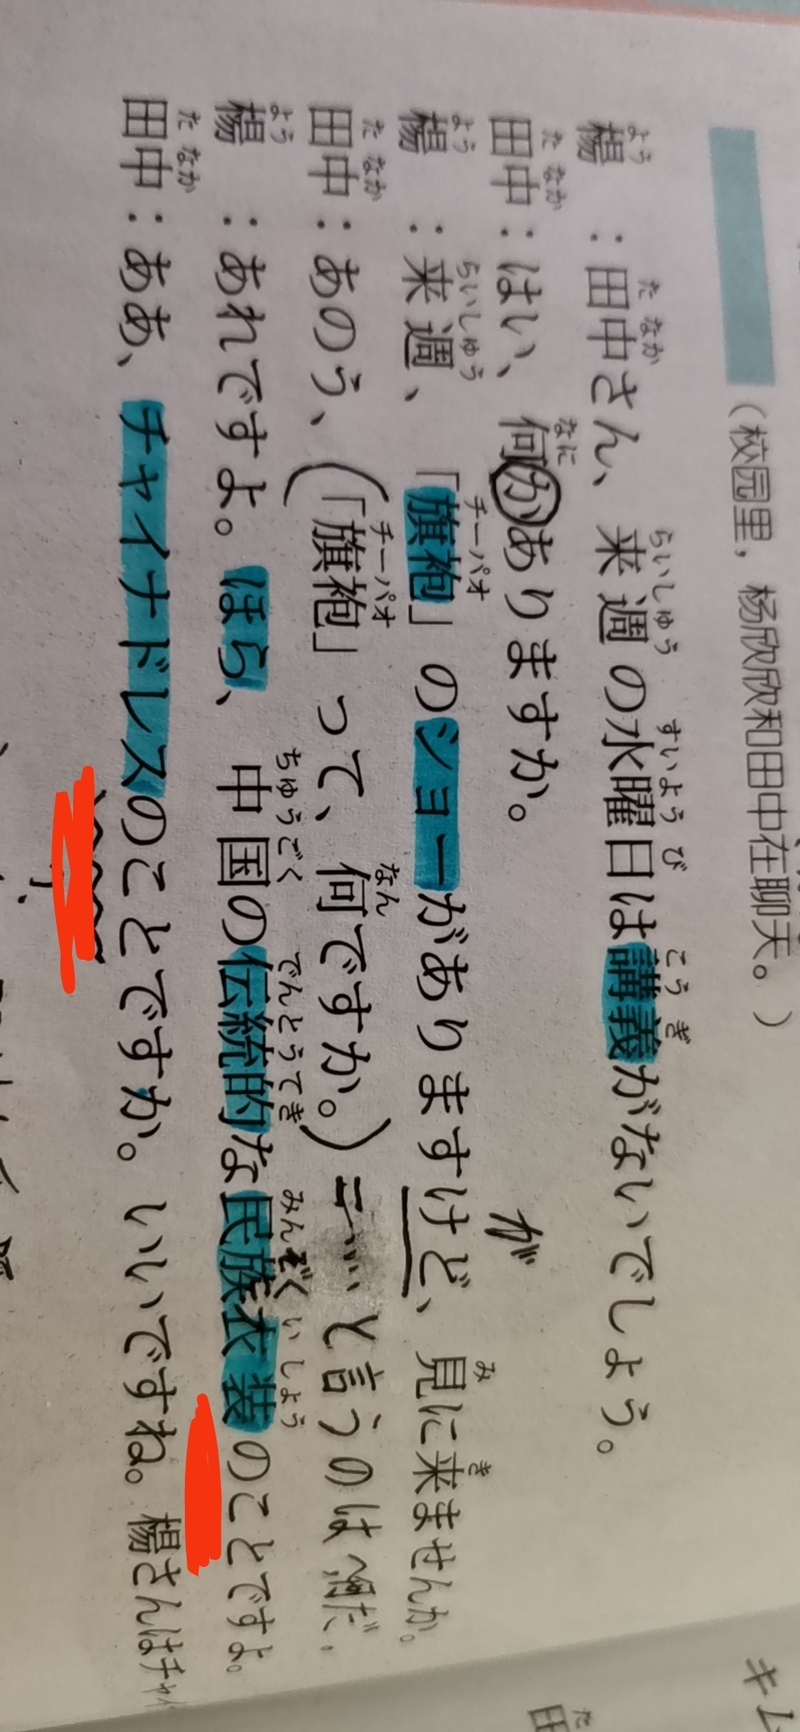 （校园里，杨欣欣和田中在聊天。）
楊：田中さん、来週の水曜日は講義がないでしょう。
田中：はい、何かありますか。
が
楊：来週、「旗袍」のショーがありますけど、見に来ませんか。
田中：あのう、（「旗袍」って、何ですか。）と言うのは
楊：あれですよ。ほら、中国の伝統的な民族衣装のことですよ。
田中：ああ、チャイナドレスのことですか。いいですね。楊さんはチャイ
キム
田